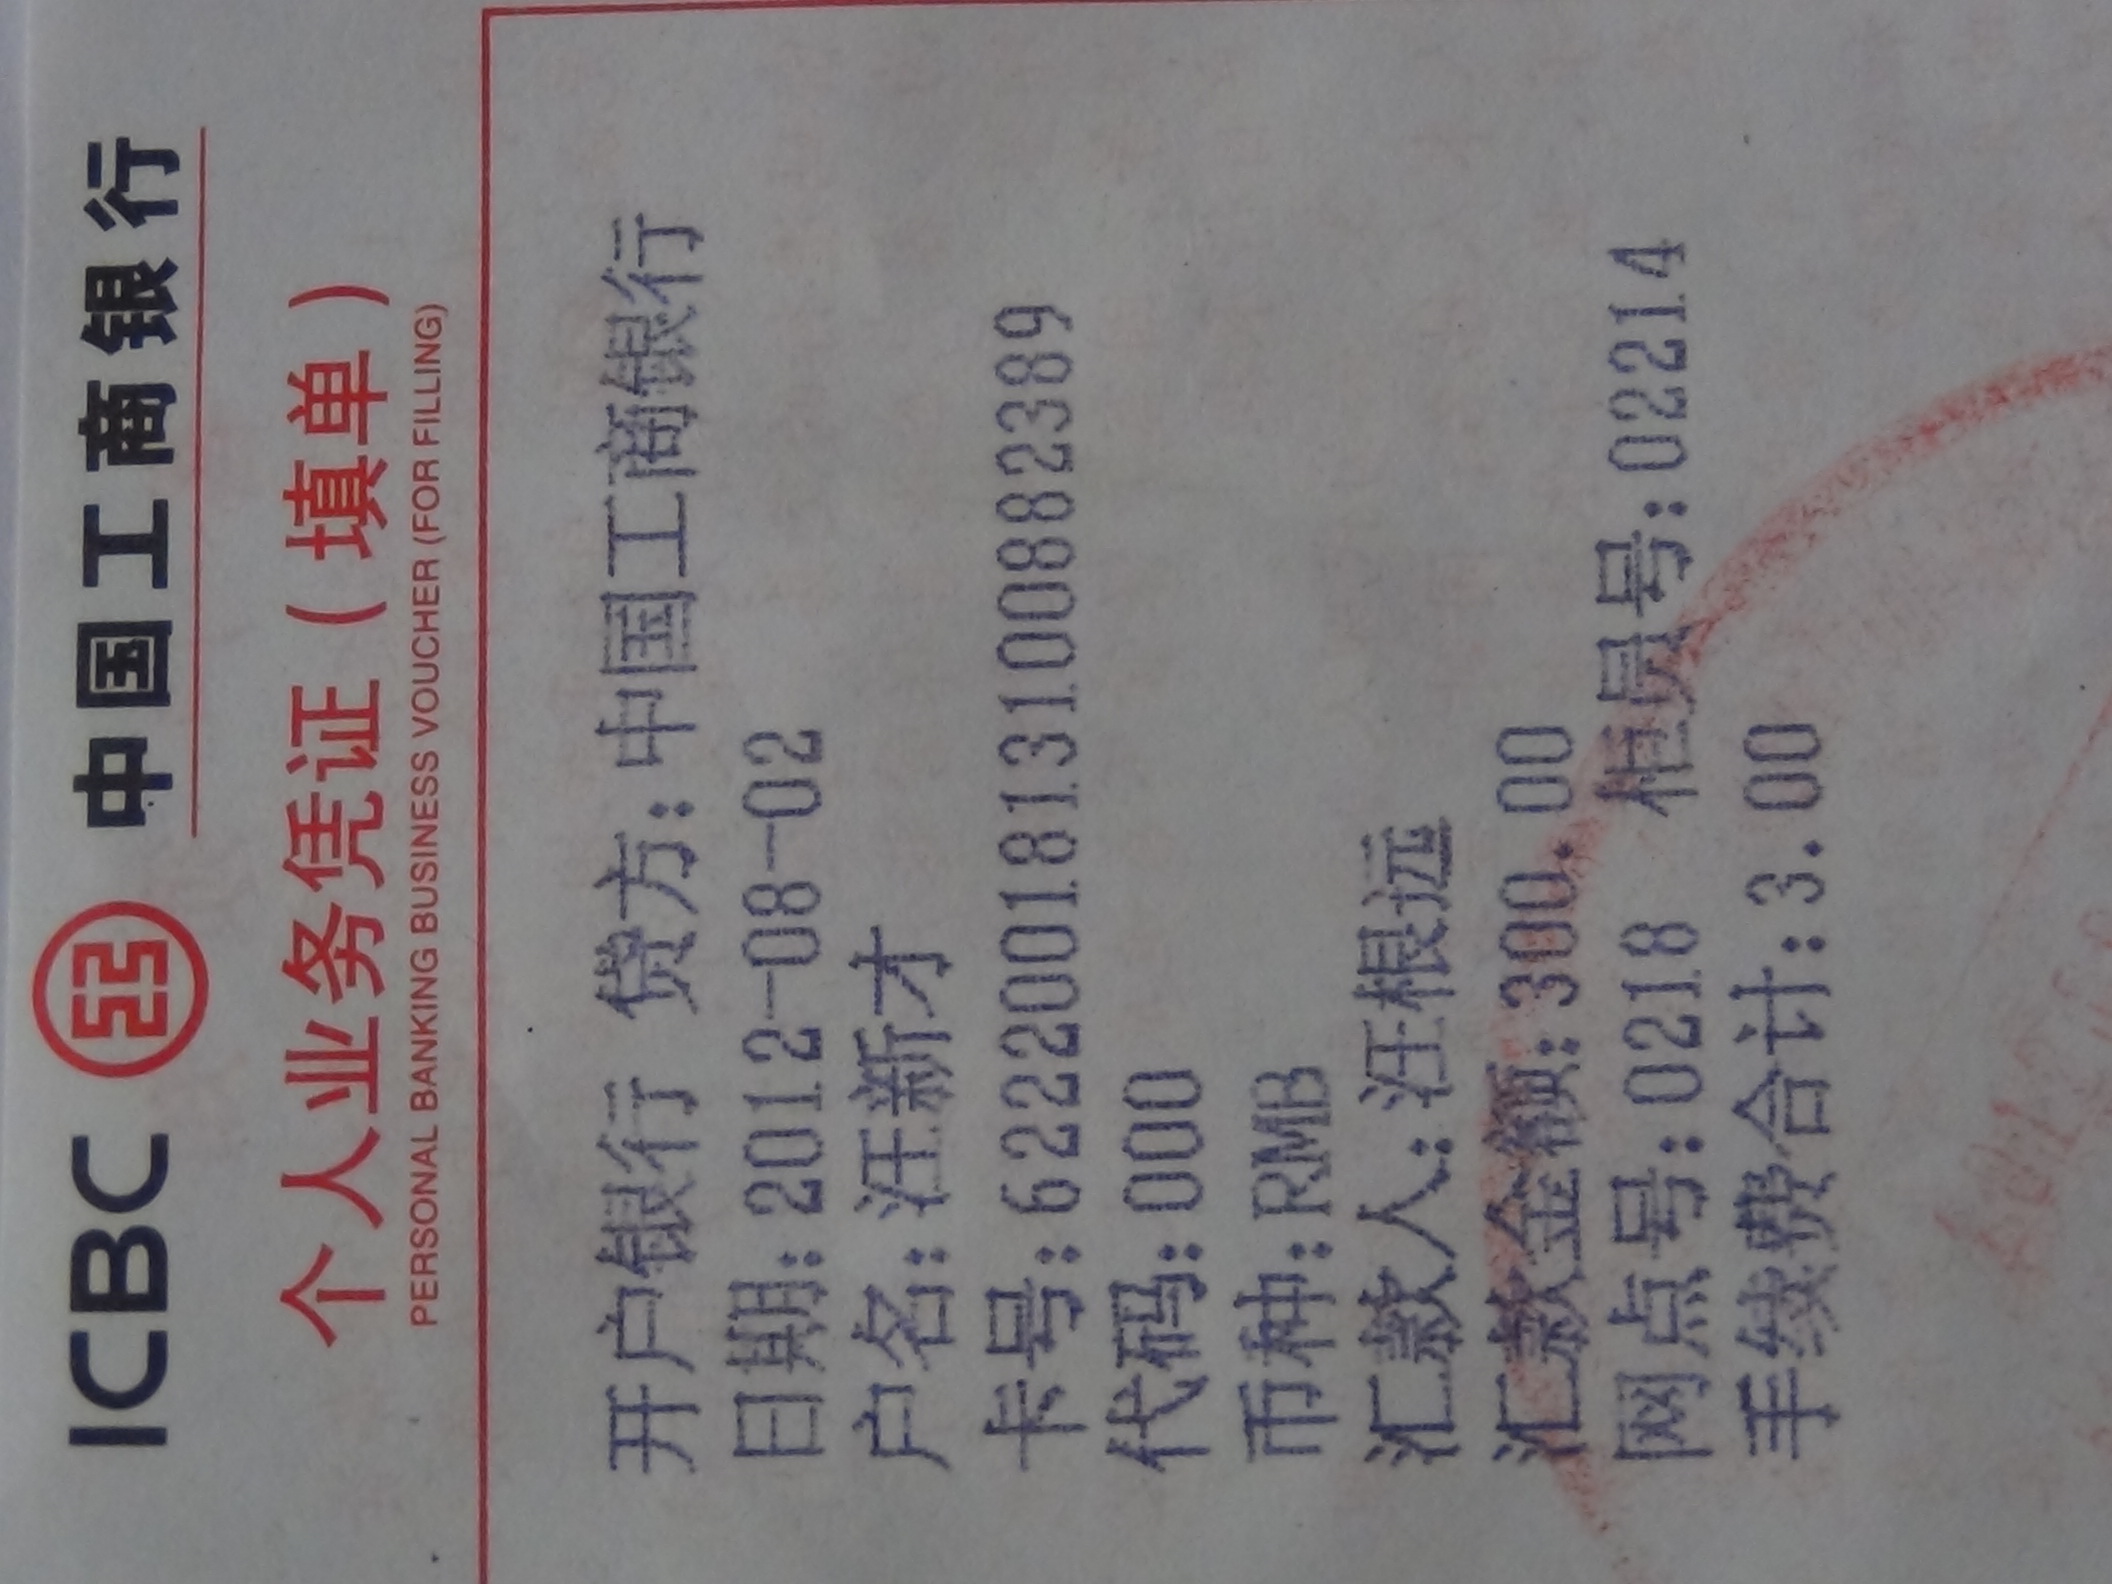 ICBC 中国工商银行
个人业务凭证（填单）
PERSONAL BANKING BUSINESS VOUCHER (FOR FILLING)
开户银行 贷方:中国工商银行
日期:2012-08-02
户名:汪新才
卡号:6222001813100882389
代码:000
币种:RMB
汇款人:汪根远
汇款金额:300.00
网点号:0218 柜员号:02214
手续费合计:3.00